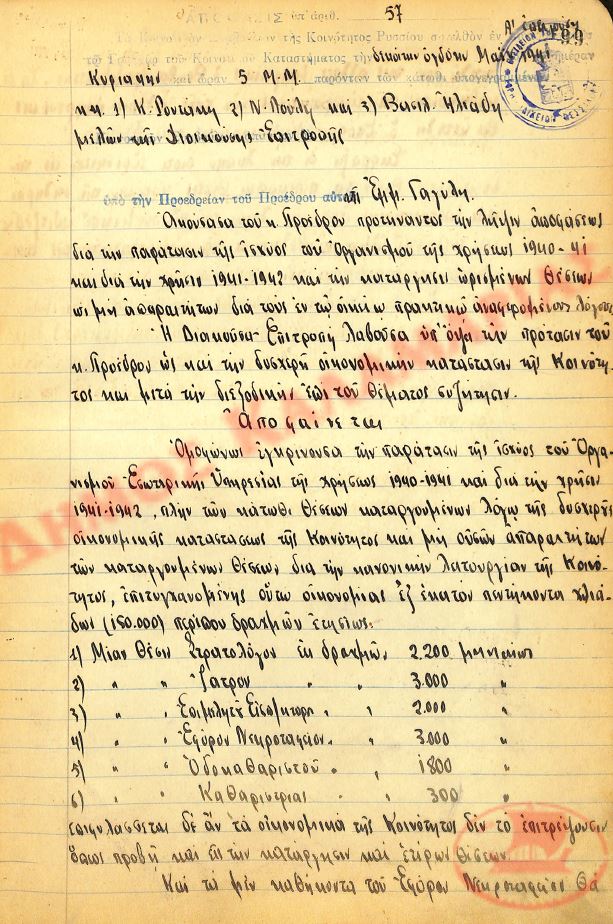 ΑΠΟΦΑΣΙΣ ὑπ' ἀριθ. 57
Τὸ Κοινοτικὸν Συμβούλιον τῆς Κοινότητος Ρυσσίου συνελθὸν ἐν
τῷ Γραφείῳ τοῦ Κοινοτικοῦ Καταστήματος τὴν δεκάτην ὀγδόην Μαΐου 1941 ἡμέραν
Κυριακὴν καὶ ὥραν 5 Μ.Μ. παρόντων τῶν κάτωθι ὑπογεγραμμένων
κ.κ. 1) Κ. Ροντάκη 2) Ν. Πούλη καὶ 3) Βασιλ. Ἠλιάδη
μελῶν τῆς Διοικούσης Ἐπιτροπῆς
ὑπὸ τὴν Προεδρείαν τοῦ Προέδρου αὐτῆς Ἐμμ. Γαγύλη.
Ἀκούσασα τοῦ κ. Προέδρου προτείναντος τὴν λῆψιν ἀποφάσεως
διὰ τὴν παράτασιν τῆς ἰσχύος τοῦ Ὀργανισμοῦ τῆς χρήσεως 1940-41
καὶ διὰ τὴν χρῆσιν 1941-1942 καὶ τὴν κατάργησιν ὡρισμένων θέσεων
ὡς μὴ ἀπαραιτήτων διὰ τοὺς ἐν τῷ οἰκείῳ πρακτικῷ ἀναφερομένους λόγους
Ἡ Διοικοῦσα Ἐπιτροπὴ λαβοῦσα ὑπ' ὄψει τὴν πρότασιν τοῦ
κ. Προέδρου ὡς καὶ τὴν δυσχερῆ οἰκονομικὴν κατάστασιν τῆς Κοινότη
τος καὶ μετὰ τὴν διεξοδικὴν ἐπὶ τοῦ θέματος συζήτησιν.
Ἀποφαίνεται
Ὁμοφώνως ἐγκρίνουσα τὴν παράτασιν τῆς ἰσχύος τοῦ Ὀργα
νισμοῦ Ἐσωτερικῆς Ὑπηρεσίας τῆς χρήσεως 1940-1941 καὶ διὰ τὴν χρῆσιν
1941-1942, πλὴν τῶν κάτωθι θέσεων καταργουμένων λόγῳ τῆς δυσχεροῦς
οἰκονομικῆς καταστάσεως τῆς Κοινότητος καὶ μὴ οὐσῶν ἀπαραιτήτων
τῶν καταργουμένων θέσεων διὰ τὴν κανονικὴν λειτουργίαν τῆς Κοινό-
τητος, ἐπιτυγχανομένης οὕτω οἰκονομίας ἐξ ἑκατὸν πεντήκοντα χιλιά-
δων (150.000) περίπου δραχμῶν ἐτησίως.
1) Μίαν θέσιν Στρατολόγου ἐκ δραχμῶν 2.200 μηνιαίως
2) " " Ἰατροῦ " " 3.000 "
3) " " Ἐπιμελητοῦ Εἰσπράκτορος " " 2.000 "
4) " " Ἐφόρου Νεκροταφείου " " 3.000 "
5) " " Ὁδοκαθαριστοῦ " " 1800 "
6) " " Καθαριστρίας " " 300 "
ἐπιφυλάσσεται δὲ ἂν τὰ οἰκονομικὰ τῆς Κοινότητος δὲν τὸ ἐπιτρέψουν
ὅπως προβῇ καὶ εἰς τὴν κατάργησιν καὶ ἑτέρων θέσεων.
Καὶ τὰ μὲν καθήκοντα τοῦ Ἐφόρου Νεκροταφείου θὰ
ΔΗΜΟΣ ΚΑΛΑΜΑΡΙΑΣ